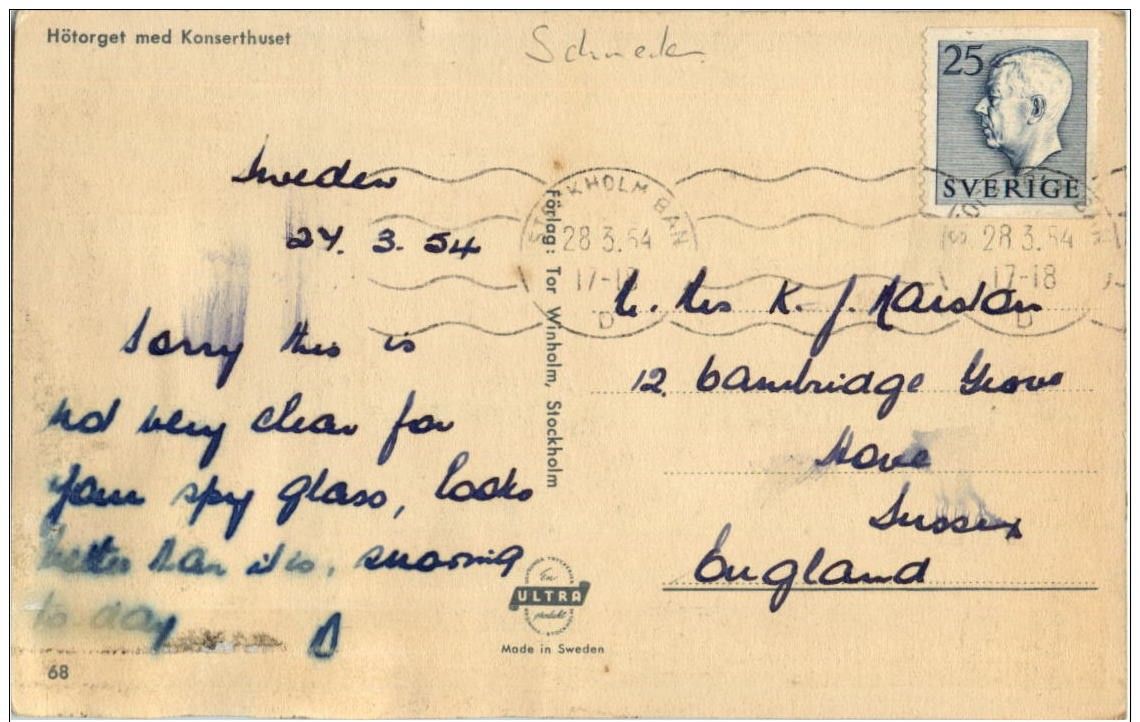 Hötorget med Konserthuset
25
SVERIGE
STOCKHOLM BAN
28 3.54
17-18
D
28 3.54
17-18
D
Sweden
27. 3. 54
Sorry this is
not very clear for
your spy glass, looks
better than it is, snowing
to day
D
Förlag: Tor Winholm, Stockholm
K. J. Marston
12, Cambridge Grove
Hove
Sussex
England
En
ULTRA
produkt
Made in Sweden
68